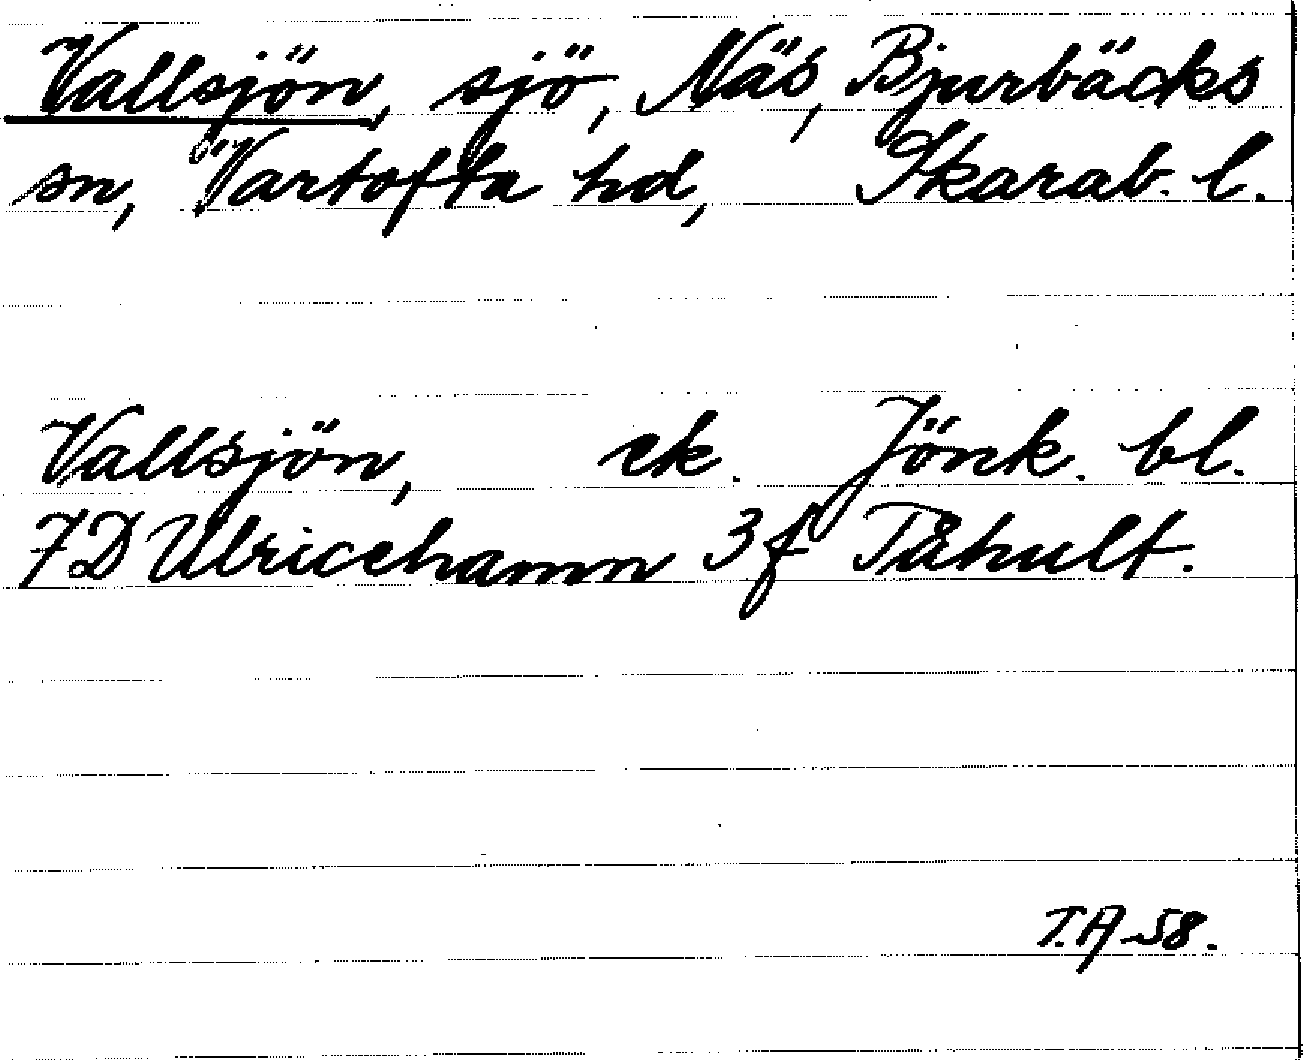 Vallsjön, sjö, Näs, Bjurbäcks
sn, Vartofta hd, Skarab. l.
Vallsjön, ek. Jönk. bl.
7D Ulricehamn 3f Tåhult.
T.A 58.